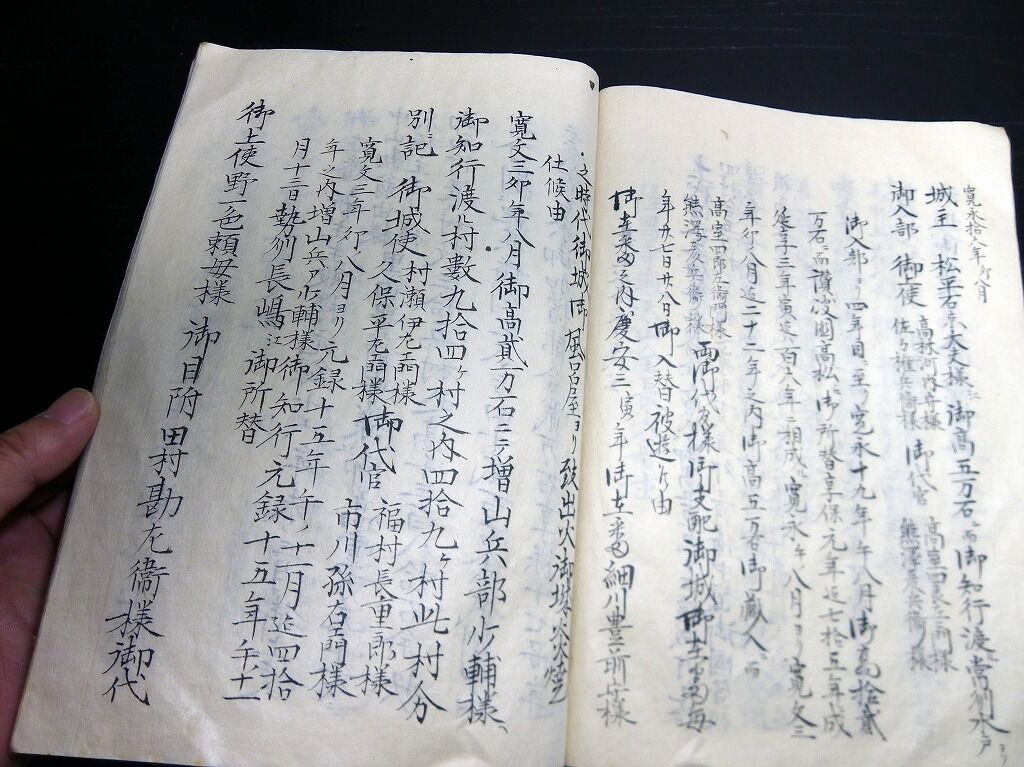 寛永拾六年卯八月
城主 松平右京大夫様 御高五万石ニ而御知行渡常州水戸ヨリ
御入部 御上使 高林河内守様 佐々権兵衛様 御代官 高室四郎左衛門様 熊澤彦兵衛様
御入部ヨリ四年目ニ至り寛永十九年午八月御高拾貳
万石ニ而讃岐国高松江御所替享保元年迄七拾五年成
延享三年寅迄百六年ニ相成ル寛永午八月ヨリ寛文三
年卯八月迄二十二年之内御高五万石御蔵入ニ而
高室四郎左衛門様 熊澤彦兵衛様 両御代官様御支配御城御在番毎
年廿七日廿八日御入替被遊候由
御在番之内慶安三寅年御在番細川豊前守様
之時代御城内風呂屋ヨリ致出火御城炎焼
仕候由
寛文三卯年八月御高貳万石ニテ増山兵部少輔様
御知行渡ル村数九拾四ヶ村之内四拾九ヶ村此村分
別ニ記 御城使 村瀬伊左エ門様 久保平左エ門様 御代官 福村長重郎様 市川孫右エ門様
寛文三年卯八月ヨリ元録十五年午ノ十一月迄四拾
年之内増山兵ア少輔様御知行元録十五年午十一
月十二日勢州長嶋江御所替
御上使野一色頼母様 御目附 田村勘左衛様御代